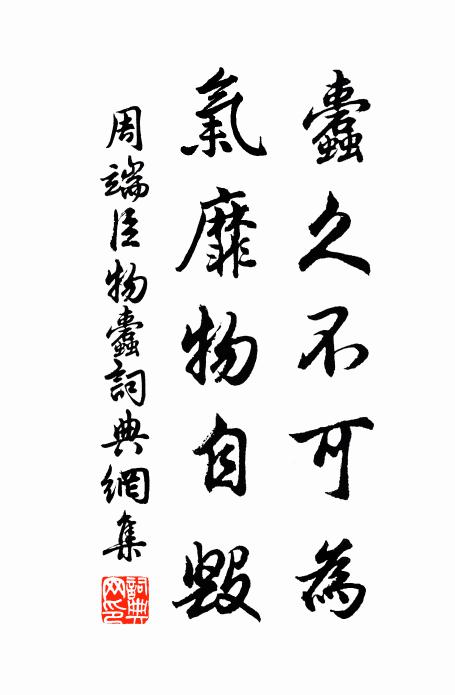 蠹久不可為
氣靡物自毀
周端臣物蠹詞典網集
詞典網印